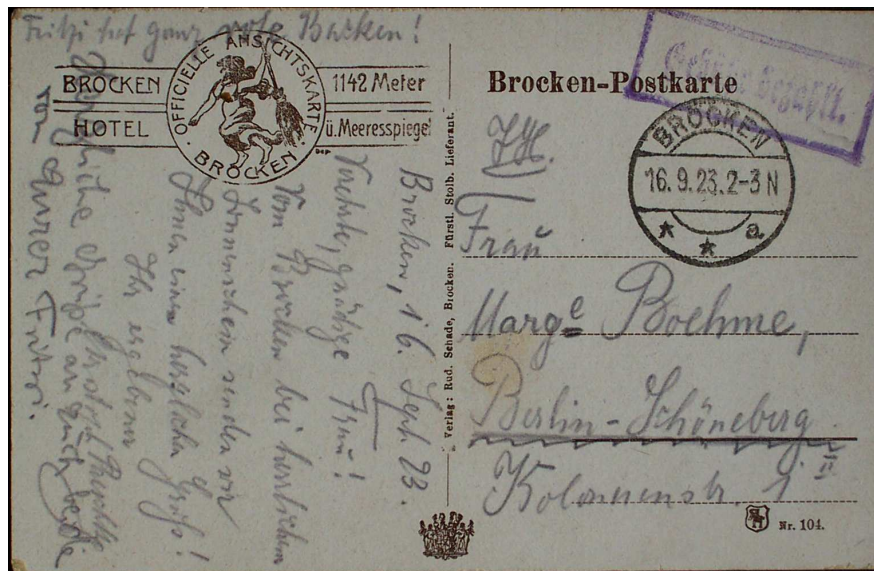 Fritzi hat ganz rote Backen!
BROCKEN
HOTEL
OFFICIELLE ANSICHTSKARTE
BROCKEN
1142 Meter
ü. Meeresspiegel
Brocken, 16. Sept. 23.
gnädige Frau!
Vom Brocken bei herrlichem
Sonnenschein senden wir
Ihnen einen herzlichen Gruß!
Ihr ergebener
Herzliche Grüße an Euch beide
von Eurer Fritzi.
Verlag: Rud. Schade, Brocken. Fürstl. Stolb. Lieferant.
Brocken-Postkarte
Gebühr bezahlt.
BROCKEN
16.9.23.2-3N
* * a
Frau
Marge Boehme,
Berlin-Schöneberg
Kolonnenstr. 1 II
Nr. 104.